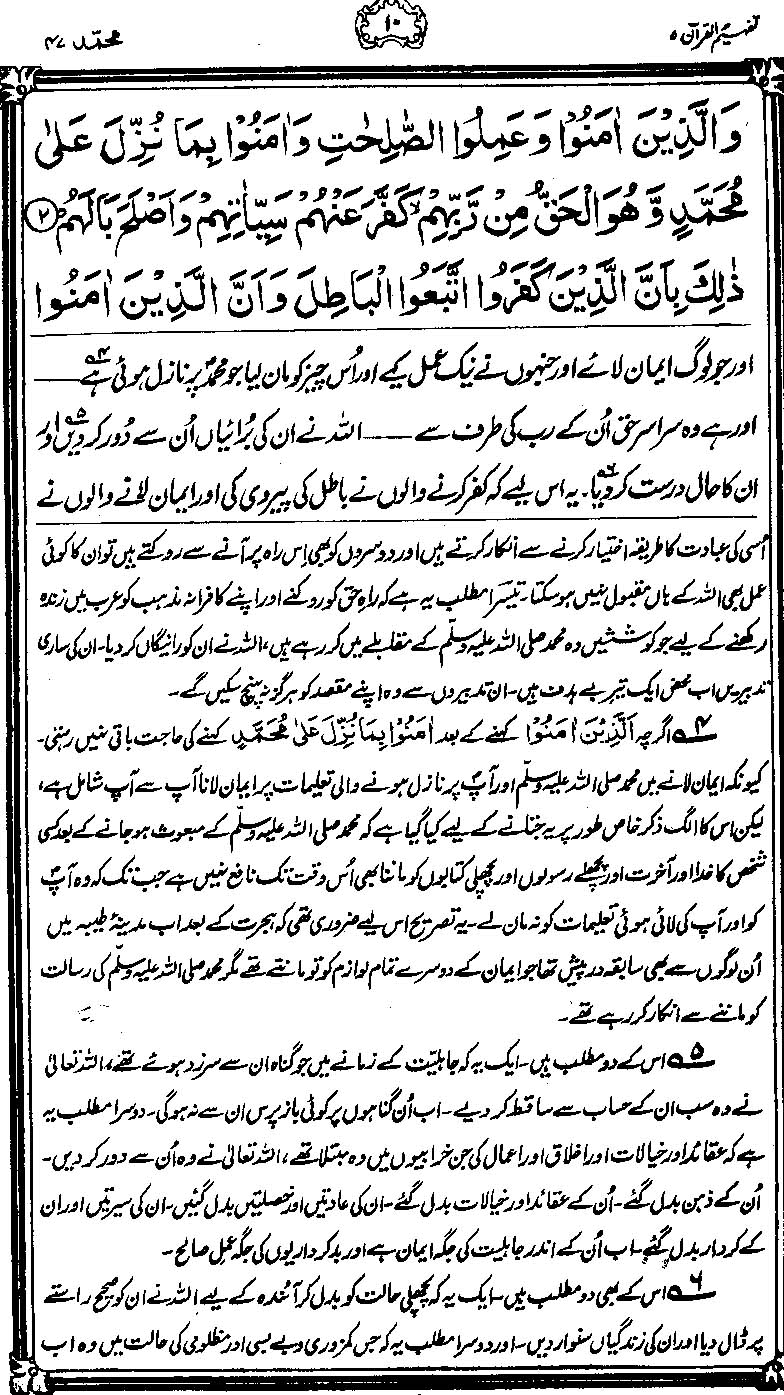 تفہیم القرآن ۵
۱۰
محمّد ۴۷
وَالَّذِيْنَ اٰمَنُوْا وَعَمِلُوا الصّٰلِحٰتِ وَاٰمَنُوْا بِمَا نُزِّلَ عَلٰى
مُحَمَّدٍ وَّهُوَ الْحَقُّ مِنْ رَّبِّهِمْ ۙ كَفَّرَ عَنْهُمْ سَيِّاٰتِهِمْ وَاَصْلَحَ بَالَهُمْ ۝۲
ذٰلِكَ بِاَنَّ الَّذِيْنَ كَفَرُوا اتَّبَعُوا الْبَاطِلَ وَاَنَّ الَّذِيْنَ اٰمَنُوا
اور جو لوگ ایمان لائے اور جنہوں نے نیک عمل کیے اور اُس چیز کو مان لیا جو محمدؐ پر نازل ہوئی ہے۴؎ ——
اور ہے وہ سراسر حق اُن کے رب کی طرف سے —— اللہ نے ان کی بُرائیاں اُن سے دُور کر دیں۵؎ اور
ان کا حال درست کر دیا۶؎۔ یہ اس لیے کہ کفر کرنے والوں نے باطل کی پیروی کی اور ایمان لانے والوں نے
اُسی کی عبادت کا طریقہ اختیار کرنے سے انکار کرتے ہیں اور دوسروں کو بھی اِس راہ پر آنے سے روکتے ہیں تو ان کا کوئی
عمل بھی اللہ کے ہاں مقبول نہیں ہو سکتا۔ تیسرا مطلب یہ ہے کہ راہِ حق کو روکنے اور اپنے کافرانہ مذہب کو عرب میں زندہ
رکھنے کے لیے جو کوششیں وہ محمد صلی اللہ علیہ وسلّم کے مقابلے میں کر رہے ہیں، اللہ نے ان کو رائیگاں کر دیا۔ ان کی ساری
تدبیریں اب محض ایک تیر بے ہدف ہیں۔ ان تدبیروں سے وہ اپنے مقصد کو ہرگز نہ پہنچ سکیں گے۔
۴؎ اگرچہ اَلَّذِيْنَ اٰمَنُوْا کہنے کے بعد اٰمَنُوْا بِمَا نُزِّلَ عَلٰى مُحَمَّدٍ کہنے کی حاجت باقی نہیں رہتی۔
کیونکہ ایمان لانے میں محمد صلی اللہ علیہ وسلّم اور آپ پر نازل ہونے والی تعلیمات پر ایمان لانا آپ سے آپ شامل ہے،
لیکن اس کا الگ ذکر خاص طور پر یہ جتانے کے لیے کیا گیا ہے کہ محمد صلی اللہ علیہ وسلّم کے مبعوث ہو جانے کے بعد کسی
شخص کا خدا اور آخرت اور پچھلے رسولوں اور پچھلی کتابوں کو ماننا بھی اُس وقت تک نافع نہیں ہے جب تک کہ وہ آپؐ
کو اور آپ کی لائی ہوئی تعلیمات کو نہ مان لے۔ یہ تصریح اس لیے ضروری تھی کہ ہجرت کے بعد اب مدینۂ طیبہ میں
اُن لوگوں سے بھی سابقہ درپیش تھا جو ایمان کے دوسرے تمام لوازم کو تو مانتے تھے مگر محمد صلی اللہ علیہ وسلّم کی رسالت
کو ماننے سے انکار کر رہے تھے۔
۵؎ اس کے دو مطلب ہیں۔ ایک یہ کہ جاہلیت کے زمانے میں جو گناہ ان سے سرزد ہوئے تھے، اللہ تعالیٰ
نے وہ سب ان کے حساب سے ساقط کر دیے۔ اب اُن گناہوں پر کوئی باز پرس ان سے نہ ہوگی۔ دوسرا مطلب یہ
ہے کہ عقائد اور خیالات اور اخلاق اور اعمال کی جن خرابیوں میں وہ مبتلا تھے، اللہ تعالیٰ نے وہ اُن سے دور کر دیں۔
اُن کے ذہن بدل گئے۔ اُن کے عقائد اور خیالات بدل گئے۔ ان کی عادتیں اور خصلتیں بدل گئیں۔ ان کی سیرتیں اور ان
کے کردار بدل گئے۔ اب اُن کے اندر جاہلیت کی جگہ ایمان ہے اور بدکرداریوں کی جگہ عمل صالح۔
۶؎ اس کے بھی دو مطلب ہیں۔ ایک یہ کہ پچھلی حالت کو بدل کر آئندہ کے لیے اللہ نے ان کو صحیح راستے
پر ڈال دیا اور ان کی زندگیاں سنوار دیں۔ اور دوسرا مطلب یہ کہ جس کمزوری و بے بسی اور مظلومی کی حالت میں وہ اب